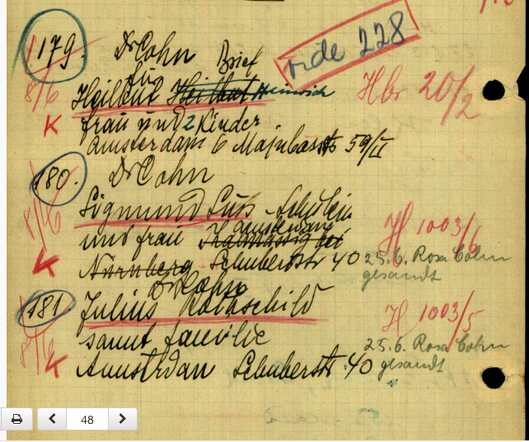 179. Dr Cohn Brief vide 228
für
Heilbut Heilbut Heinrich Hbr 20/2
8/6
K Frau und 2 Kinder
Amsterdam 6 Majubastr 59/II
180. Dr Cohn
Sigmund Süß-Schülein H 1003/6
8/6
und Frau Amsterdam
K Nürnberg Schubertstr 40 25.6. Rosa Cohen
gesandt
Dr Cohn
181 Julius Rothschild H 1003/5
8/6
samt Familie 25.6. Rosa Cohen
K Amsterdam Schubertstr. 40 gesandt
48